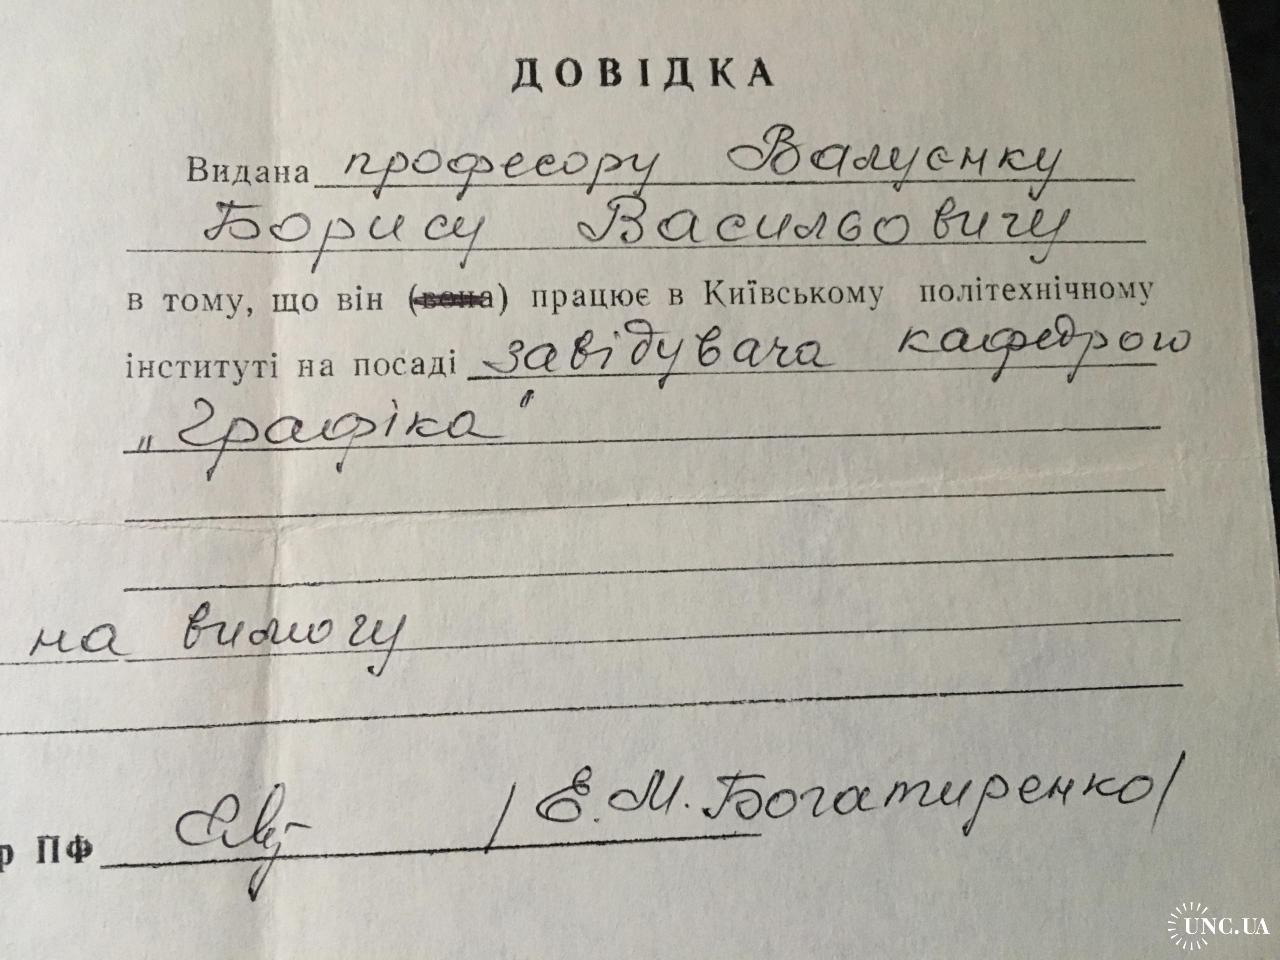 ДОВІДКА
Видана професору Валуєнку
Борису Васильовичу
в тому, що він (вона) працює в Київському політехнічному
інституті на посаді завідувача кафедрою
„Графіка"
на вимогу
р ПФ /Є.М. Богатиренко/
UNC.UA